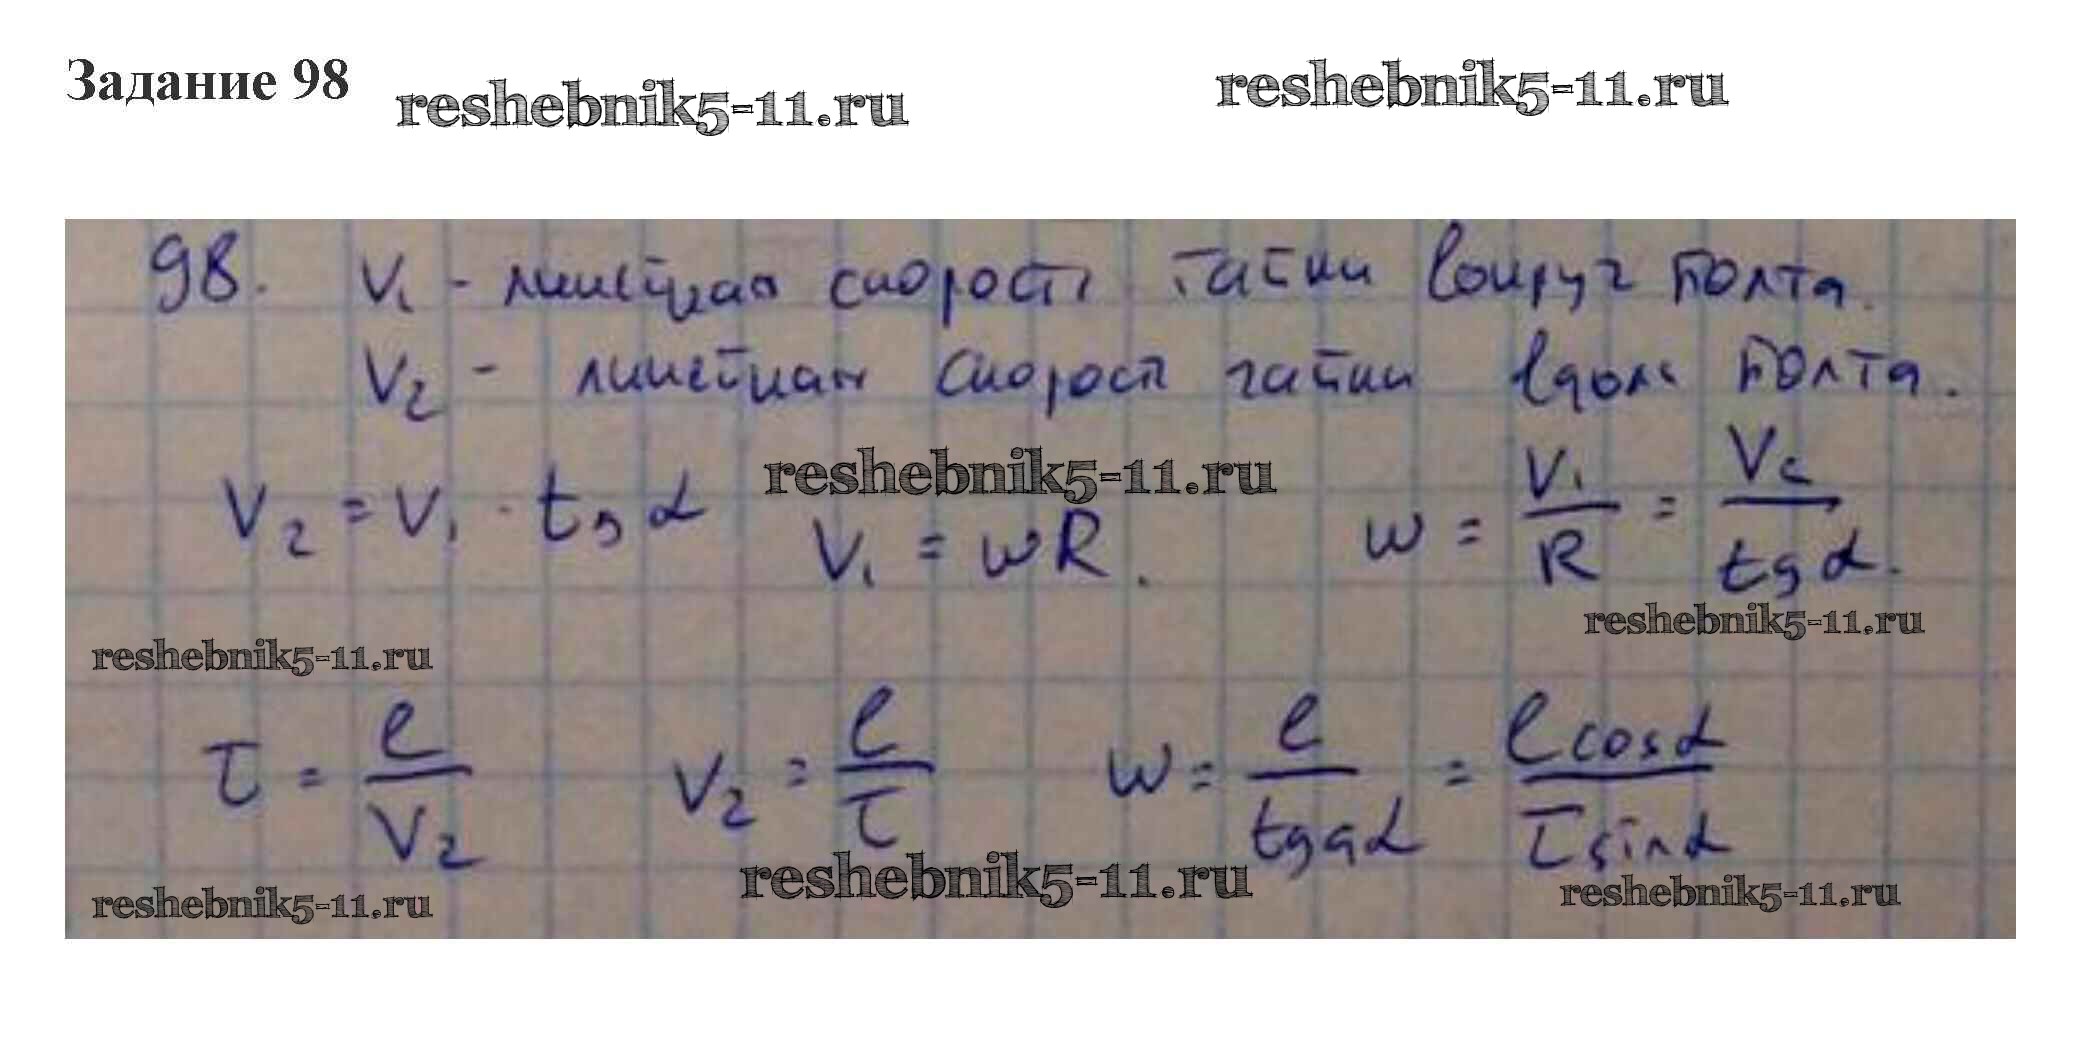 Задание 98
reshebnik5-11.ru
reshebnik5-11.ru
98. V₁ - линейная скорость гайки вокруг болта.
V₂ - линейная скорость гайки вдоль болта.
reshebnik5-11.ru
V₂ = V₁ · tg α V₁ = wR. w = V₁/R = V₂/tg α.
reshebnik5-11.ru
reshebnik5-11.ru
τ = l/V₂ V₂ = l/τ w = l/tgqα = l cosα/τ sinα
reshebnik5-11.ru
reshebnik5-11.ru
reshebnik5-11.ru